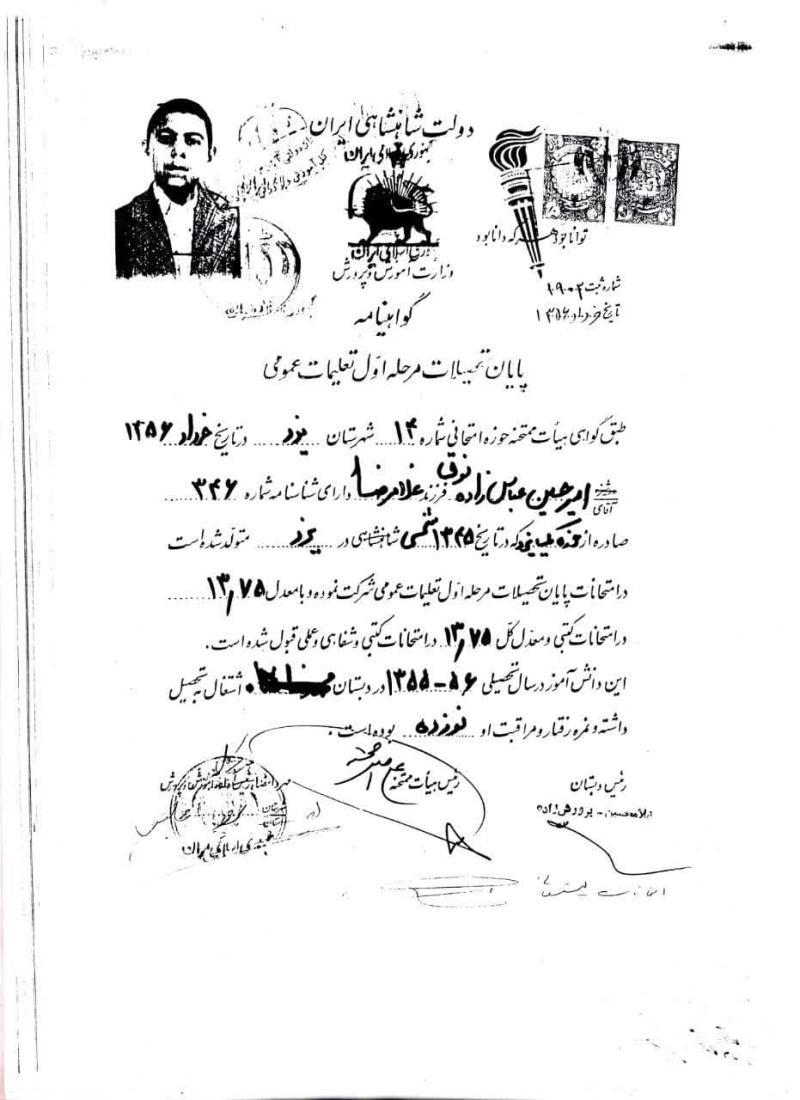 دولت شاهنشاهی ایران
جمهوری اسلامی ایران
توانا بود هر که دانا بود
وزارت آموزش و پرورش
شماره ثبت ۱۹۰۲
تاریخ خرداد ۱۳۵۶
گواهینامه
پایان تحصیلات مرحله اوّل تعلیمات عمومی
طبق گواهی هیأت ممتحنه حوزه امتحانی شماره ۱۴ شهرستان یزد در تاریخ خرداد ۱۳۵۶
آقای امیرحسین عباس زاده فرزند غلامرضا دارای شناسنامه شماره ۳۴۶
صادره از که در تاریخ ۱۳۴۵ شمسی شاهنشاهی در یزد متولّد شده است
در امتحانات پایان تحصیلات مرحله اوّل تعلیمات عمومی شرکت نموده و با معدل ۱۳٫۷۵
در امتحانات کتبی و معدّل کلّ ۱۳٫۷۵ در امتحانات کتبی و شفاهی و عملی قبول شده است.
این دانش آموز در سال تحصیلی ۵۶-۱۳۵۵ در دبستان اشتغال به تحصیل
داشته و نمره رفتار و مراقبت او نوزده بوده است.
رئیس دبستان
رئیس هیأت ممتحنه
جمهوری اسلامی ایران